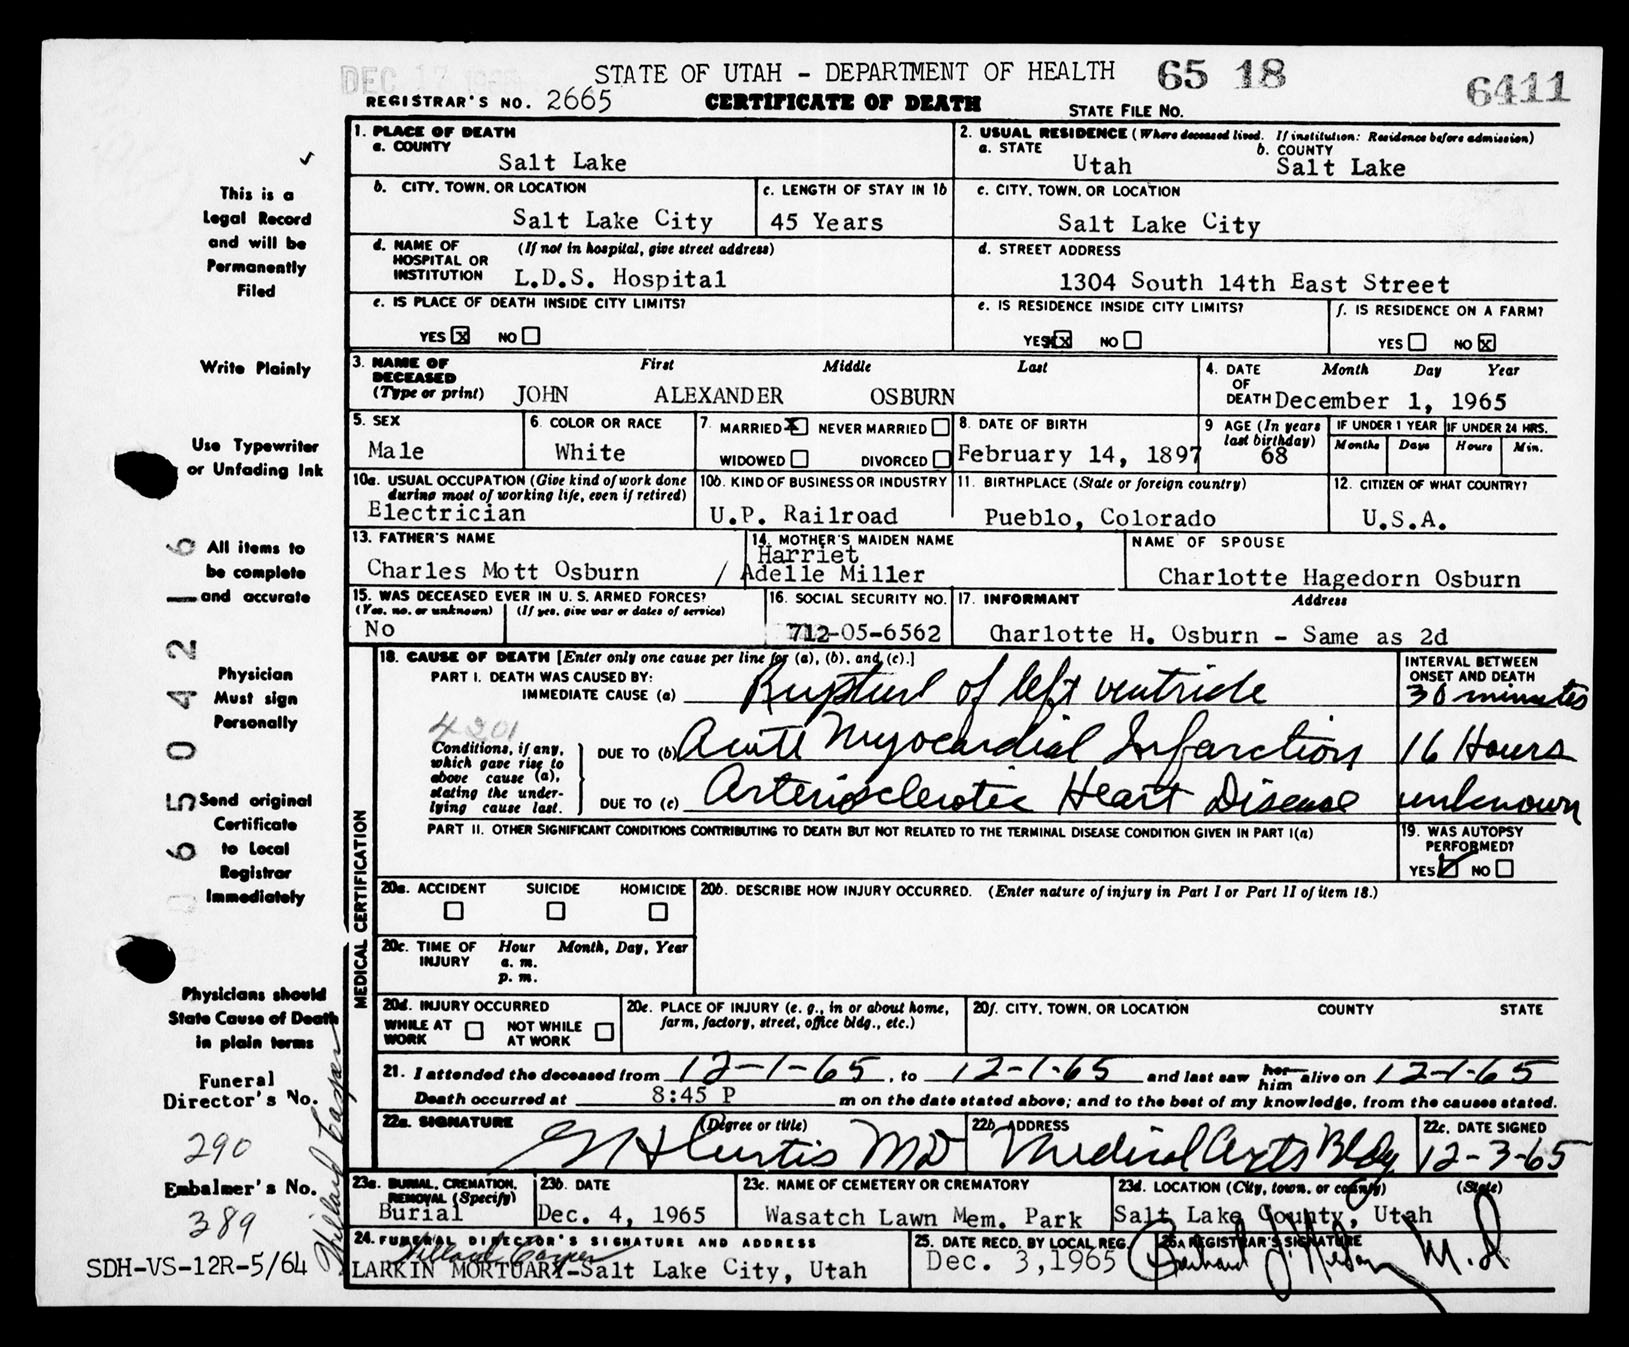 DEC 17 1965
STATE OF UTAH - DEPARTMENT OF HEALTH 65 18 6411
REGISTRAR'S NO. 2665 CERTIFICATE OF DEATH STATE FILE NO.
This is a Legal Record and will be Permanently Filed
Write Plainly
Use Typewriter or Unfading Ink
All items to be complete and accurate
Physician Must sign Personally
Send original Certificate to Local Registrar Immediately
Physicians should State Cause of Death in plain terms
Funeral Director's No.
290
Embalmer's No.
389
Willard Casper
SDH-VS-12R-5/64
1. PLACE OF DEATH
a. COUNTY
Salt Lake
2. USUAL RESIDENCE (Where deceased lived. If institution: Residence before admission)
a. STATE b. COUNTY
Utah Salt Lake
b. CITY, TOWN, OR LOCATION
Salt Lake City
c. LENGTH OF STAY IN 1b
45 Years
c. CITY, TOWN, OR LOCATION
Salt Lake City
d. NAME OF HOSPITAL OR INSTITUTION (If not in hospital, give street address)
L.D.S. Hospital
d. STREET ADDRESS
1304 South 14th East Street
e. IS PLACE OF DEATH INSIDE CITY LIMITS?
YES X NO
e. IS RESIDENCE INSIDE CITY LIMITS?
YES X NO
f. IS RESIDENCE ON A FARM?
YES NO X
3. NAME OF DECEASED (Type or print) First Middle Last
JOHN ALEXANDER OSBURN
4. DATE OF DEATH Month Day Year
December 1, 1965
5. SEX
Male
6. COLOR OR RACE
White
7. MARRIED X NEVER MARRIED
WIDOWED DIVORCED
8. DATE OF BIRTH
February 14, 1897
9 AGE (In years last birthday)
68
IF UNDER 1 YEAR IF UNDER 24 HRS.
Months Days Hours Min.
10a. USUAL OCCUPATION (Give kind of work done during most of working life, even if retired)
Electrician
10b. KIND OF BUSINESS OR INDUSTRY
U.P. Railroad
11. BIRTHPLACE (State or foreign country)
Pueblo, Colorado
12. CITIZEN OF WHAT COUNTRY?
U.S.A.
13. FATHER'S NAME
Charles Mott Osburn
14. MOTHER'S MAIDEN NAME
Harriet
/ Adelle Miller
NAME OF SPOUSE
Charlotte Hagedorn Osburn
15. WAS DECEASED EVER IN U.S. ARMED FORCES?
(Yes, no, or unknown) (If yes, give war or dates of service)
No
16. SOCIAL SECURITY NO.
712-05-6562
17. INFORMANT Address
Charlotte H. Osburn - Same as 2d
MEDICAL CERTIFICATION
18. CAUSE OF DEATH [Enter only one cause per line for (a), (b), and (c).]
INTERVAL BETWEEN ONSET AND DEATH
PART I. DEATH WAS CAUSED BY:
IMMEDIATE CAUSE (a) Rupture of left ventricle 30 minutes
4201
Conditions, if any, which gave rise to above cause (a), stating the underlying cause last.
DUE TO (b) Acute Myocardial Infarction 16 Hours
DUE TO (c) Arteriosclerotic Heart Disease unknown
PART II. OTHER SIGNIFICANT CONDITIONS CONTRIBUTING TO DEATH BUT NOT RELATED TO THE TERMINAL DISEASE CONDITION GIVEN IN PART I(a)
19. WAS AUTOPSY PERFORMED?
YES NO
20a. ACCIDENT SUICIDE HOMICIDE
20b. DESCRIBE HOW INJURY OCCURRED. (Enter nature of injury in Part I or Part II of item 18.)
20c. TIME OF INJURY Hour Month, Day, Year
a. m.
p. m.
20d. INJURY OCCURRED
WHILE AT WORK NOT WHILE AT WORK
20e. PLACE OF INJURY (e. g., in or about home, farm, factory, street, office bldg., etc.)
20f. CITY, TOWN, OR LOCATION COUNTY STATE
21. I attended the deceased from 12-1-65, to 12-1-65 and last saw her him alive on 12-1-65
Death occurred at 8:45 P m on the date stated above; and to the best of my knowledge, from the causes stated.
22a. SIGNATURE (Degree or title)
G H Curtis MD
22b. ADDRESS
Medical Arts Bldg
22c. DATE SIGNED
12-3-65
23a. BURIAL, CREMATION, REMOVAL (Specify)
Burial
23b. DATE
Dec. 4, 1965
23c. NAME OF CEMETERY OR CREMATORY
Wasatch Lawn Mem. Park
23d. LOCATION (City, town, or county) (State)
Salt Lake County, Utah
24. FUNERAL DIRECTOR'S SIGNATURE AND ADDRESS
Willard Casper
LARKIN MORTUARY-Salt Lake City, Utah
25. DATE RECD. BY LOCAL REG.
Dec. 3, 1965
26A REGISTRAR'S SIGNATURE
M.D
065042 16